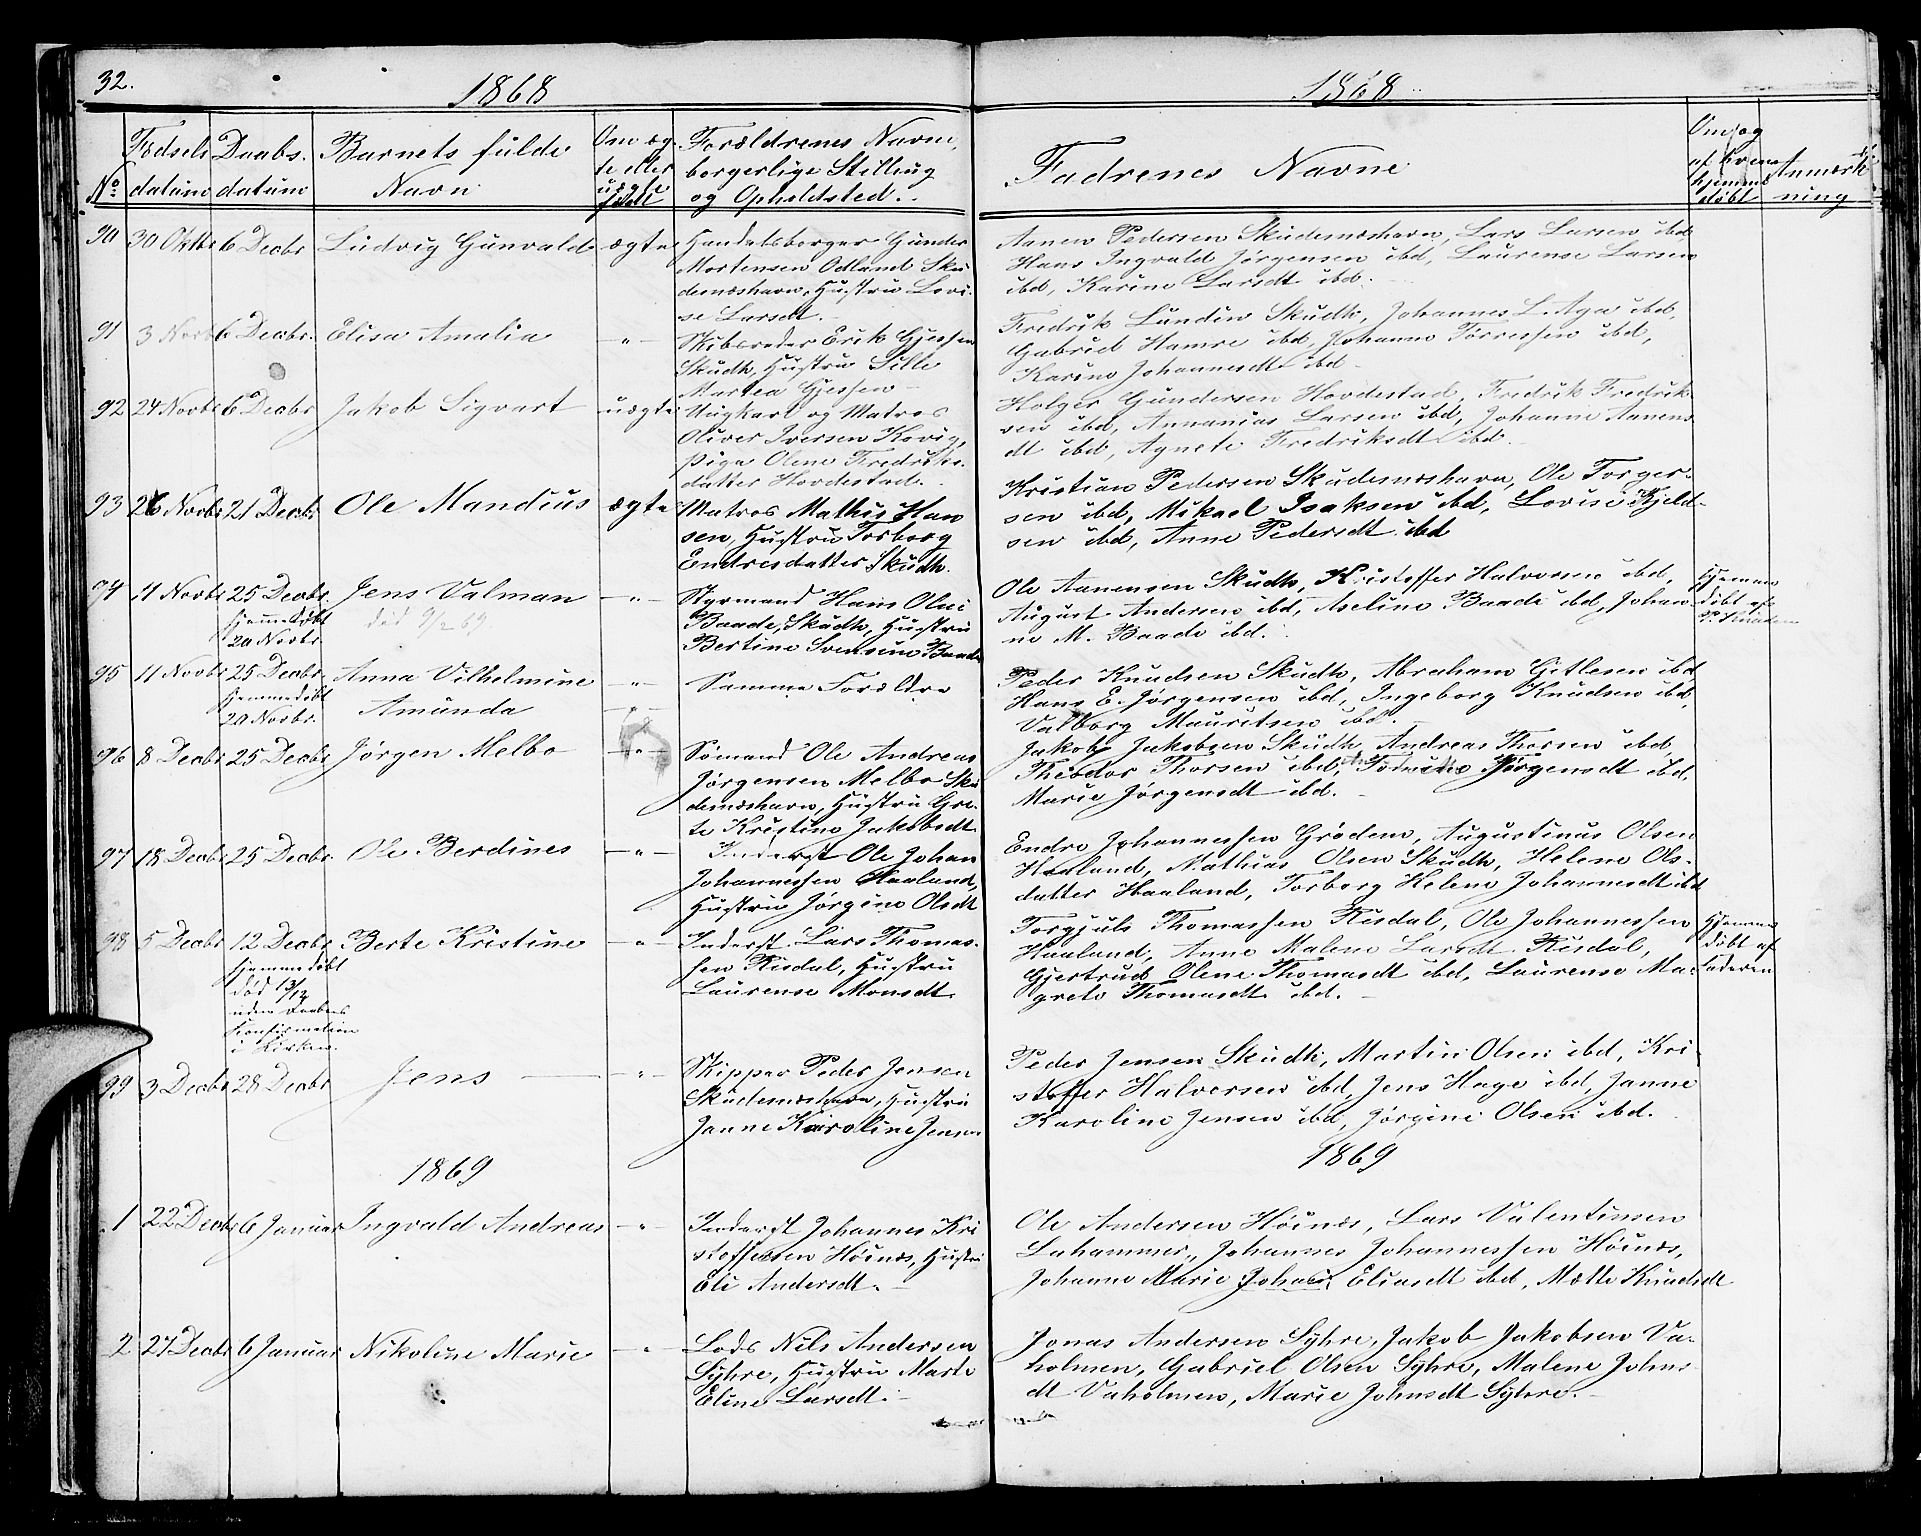 32.
1868
1868
No
Fødsels
datum
Daabs.
datum
Barnets fulde
Navn
Om æg
te eller
uægte
født
Forældrenes Navne,
borgerlige Stilling
og Opholdsted.
Fadrenes Navne
Om og
af hvem
hjemme
døbt
Anmærk
ning
90 30 Oktbr 6 Decbr Ludvig Gunvald ægte
Handelsborger Gunder
Mortensen Odland Sku
desneshavn, Hustru Lovi-
se Larsdt.
Aanen Pedersen Skudesneshavn, Lars Larsen ibd
Hans Ingvald Jørgensen ibd, Laurense Larsen
ibd, Karine Larsdt ibd.
91 3 Novbr 6 Decbr. Elisa Amalia -"-
Skibsreder Erik Gjessen
Skudh, Hustru Sille
Martea Gjessen
Fredrik Lundin Skudh, Johannes L. Aga ibd,
Gabriel Hamre ibd, Johanne Tørressen ibd,
Karine Johannesdt ibd
92 24 Novbr 6 Decbr Jakob Sigvart uægte
Ungkarl og Matros
Oliver Iversen Kovig,
pige Olene Fredriks-
datter Hovdestad.
Holger Gundersen Hovdestad, Fredrik Fredrik-
sen ibd, Annanias Larsen ibd, Johanne Aanens
dt ibd, Agnete Fredriksdt ibd.
93 26 Novbr 21 Decbr Ole Mandius ægte
Matros Mathis Han
sen, Hustru Torborg
Endresdatter Skudh.
Kristian Pedersen Skudesneshavn, Ole Torger-
sen ibd, Mikael Isaksen ibd, Lovise Kjeld-
sen ibd, Anne Pedersdt ibd
94 11 Novbr 25 Decbr. Jens Valman -"-
Hjemmedøbt
20 Novbr.
død 9/2 69.
Styrmand Hans Olai
Baade, Skudh, Hustru
Bertine Svensine Baade
Ole Aanensen Skudh, Kristoffer Halvorsen ibd,
August Andersen ibd, Aseline Baade ibd, Johan-
ne M. Baade ibd.
Hjemme
døbt af
95 11 Novbr 25 Decbr. Anna Vilhelmine -"-
Hjemmedøbt
20 Novbr.
Amunda -"-
Samme Forældre
Peder Knudsen Skudh, Abraham Gitlesen ibd
Hans E. Jørgensen ibd, Ingeborg Knudsen ibd,
Valborg Mauritsen ibd.
96 8 Decbr 25 Decbr Jørgen Melbo -"-
Sømand Ole Andreas
Jørgensen Melbo Sku
desneshavn, Hustru Gre-
te Kristine Jakobsdt
Jakob Jakobsen Skudh, Andreas Thorsen ibd,
Theodor Thorsen ibd, Jørgensdt ibd,
Marie Jørgensdt ibd.
97 18 Decbr 25 Decbr. Ole Berdines -"-
Inderst Ole Johan
Johannessen Haaland,
Hustru Jørgine Olsdt
Endre Johannessen Grødem, Augustinus Olsen
Haaland, Mathias Olsen Skudh, Helene Ols-
datter Haaland, Torborg Helene Johannesdt ibd
98 5 Decbr 12 Decbr Berte Kristine -"-
Hjemmedøbt
død 13/12
uden Daabens
Konfirmation
i Kirken.
Inderst Lars Thomas-
sen Risdal, Hustru
Laurense Monsdt
Torgjuls Thomassen Risdal, Ole Johannessen
Haaland, Anne Malene Larsdt Risdal,
Gjertrud Olene Thomasdt ibd, Laurense Ma-
grete Thomasdt ibd.
Hjemme
døbt af
Faderen
99 3 Decbr 28 Decbr Jens -"-
Skipper Peder Jensen
Skudesneshavn, Hustru
Janne Karoline Jensen
Peder Jensen Skudh, Martin Olsen ibd, Kri-
stoffer Halvorsen ibd, Jens Hage ibd, Janne
Karoline Jensen ibd, Jørgine Olsen ibd.
1869
1869
1 22 Decbr 6 Januar Ingvald Andreas -"-
Inderst Johannes Kri
stoffersen Høines, Hustru
Eli Andersdt.
Ole Andersen Høines, Lars Valentinsen
Lahammer, Johannes Johannessen Høines,
Johanne Marie Johan Eliasdt ibd, Mætte Knudsdt
2 27 Decbr 6 Januar Nikoline Marie -"-
Lods Nils Andersen
Syhre, Hustru Marte
Eline Larsdt.
Jonas Andersen Syhre, Jakob Jakobsen Va-
holmen, Gabriel Olsen Syhre, Malene Johns-
dt Vaholmen, Marie Johnsdt Syhre.